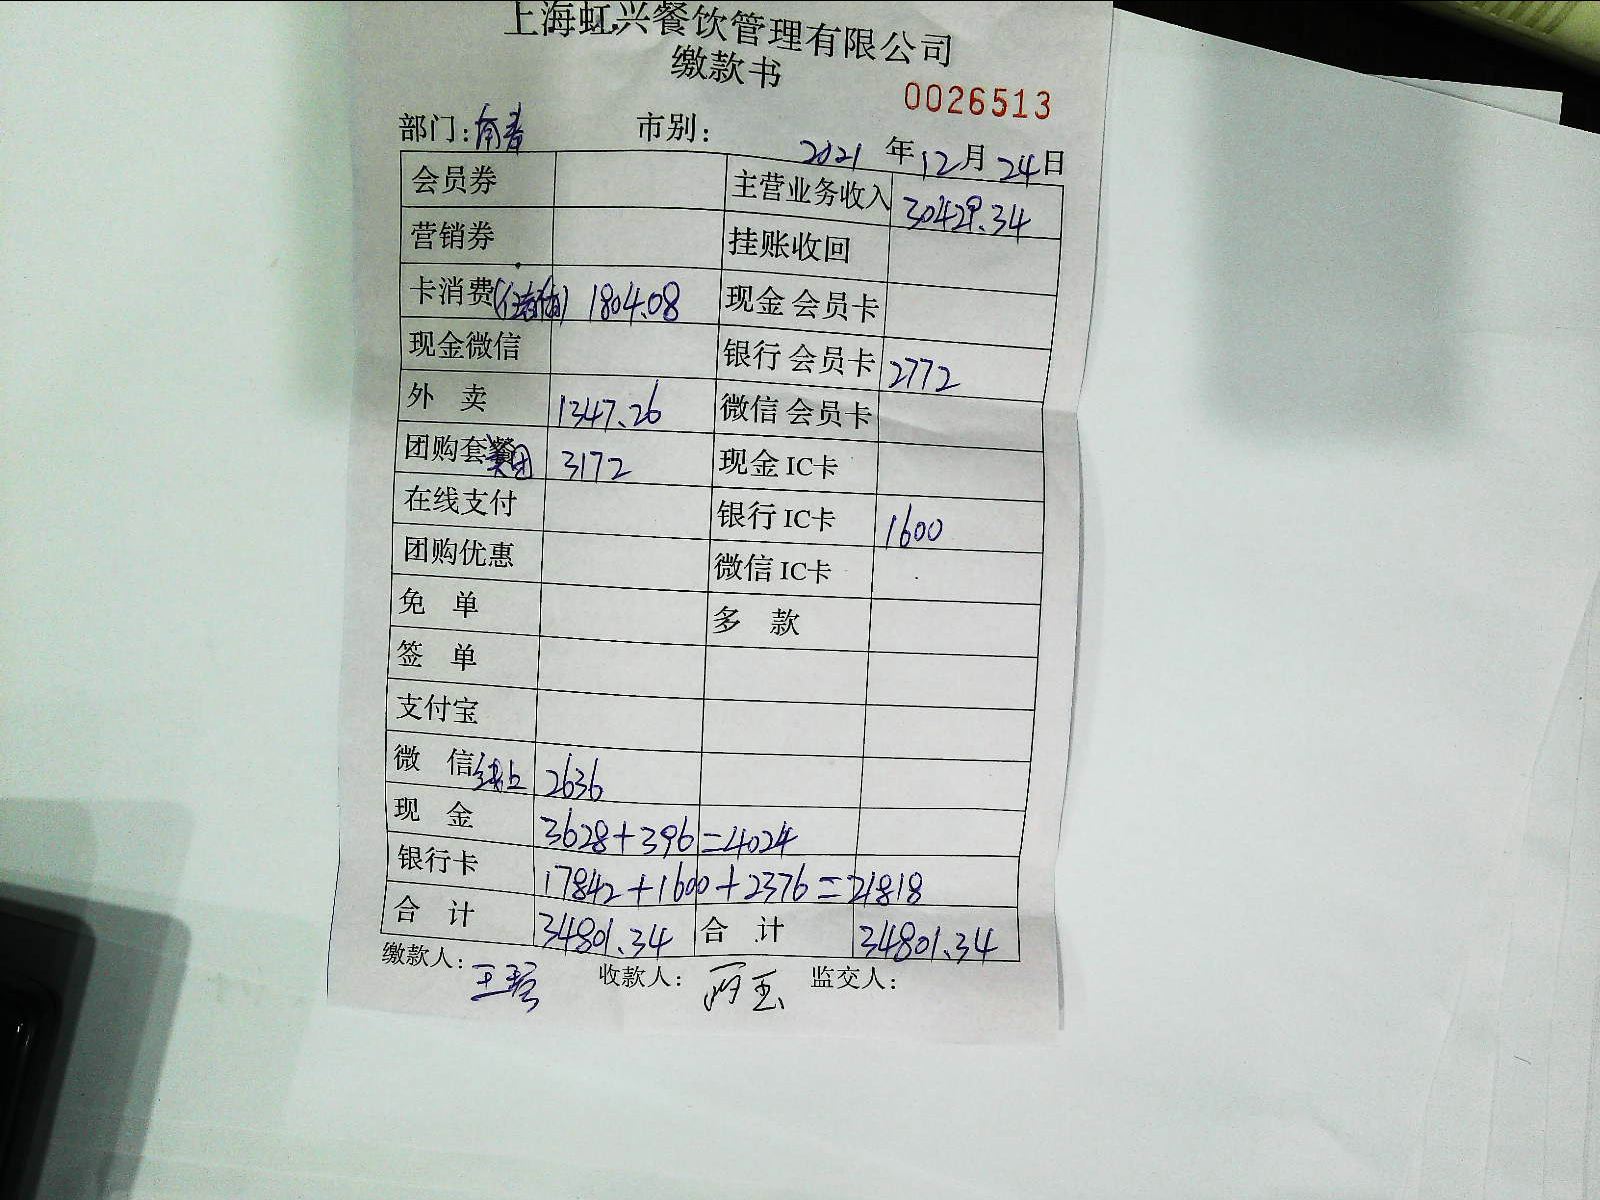 上海虹兴餐饮管理有限公司
缴款书
0026513
部门: 南青 市别: 2021 年 12 月 24 日
会员券 主营业务收入 30429.34
营销券 挂账收回
卡消费 1804.08 现金 会员卡
现金微信 银行 会员卡 2772
外 卖 1347.26 微信 会员卡
团购套餐 美团 3172 现金 IC卡
在线支付 银行 IC卡 1600
团购优惠 微信 IC卡
免 单 多 款
签 单
支付宝
微 信 线上 2636
现 金 3628+396=4024
银行卡 17842+1600+2376=21818
合 计 34801.34 合 计 34801.34
缴款人: 收款人: 监交人: